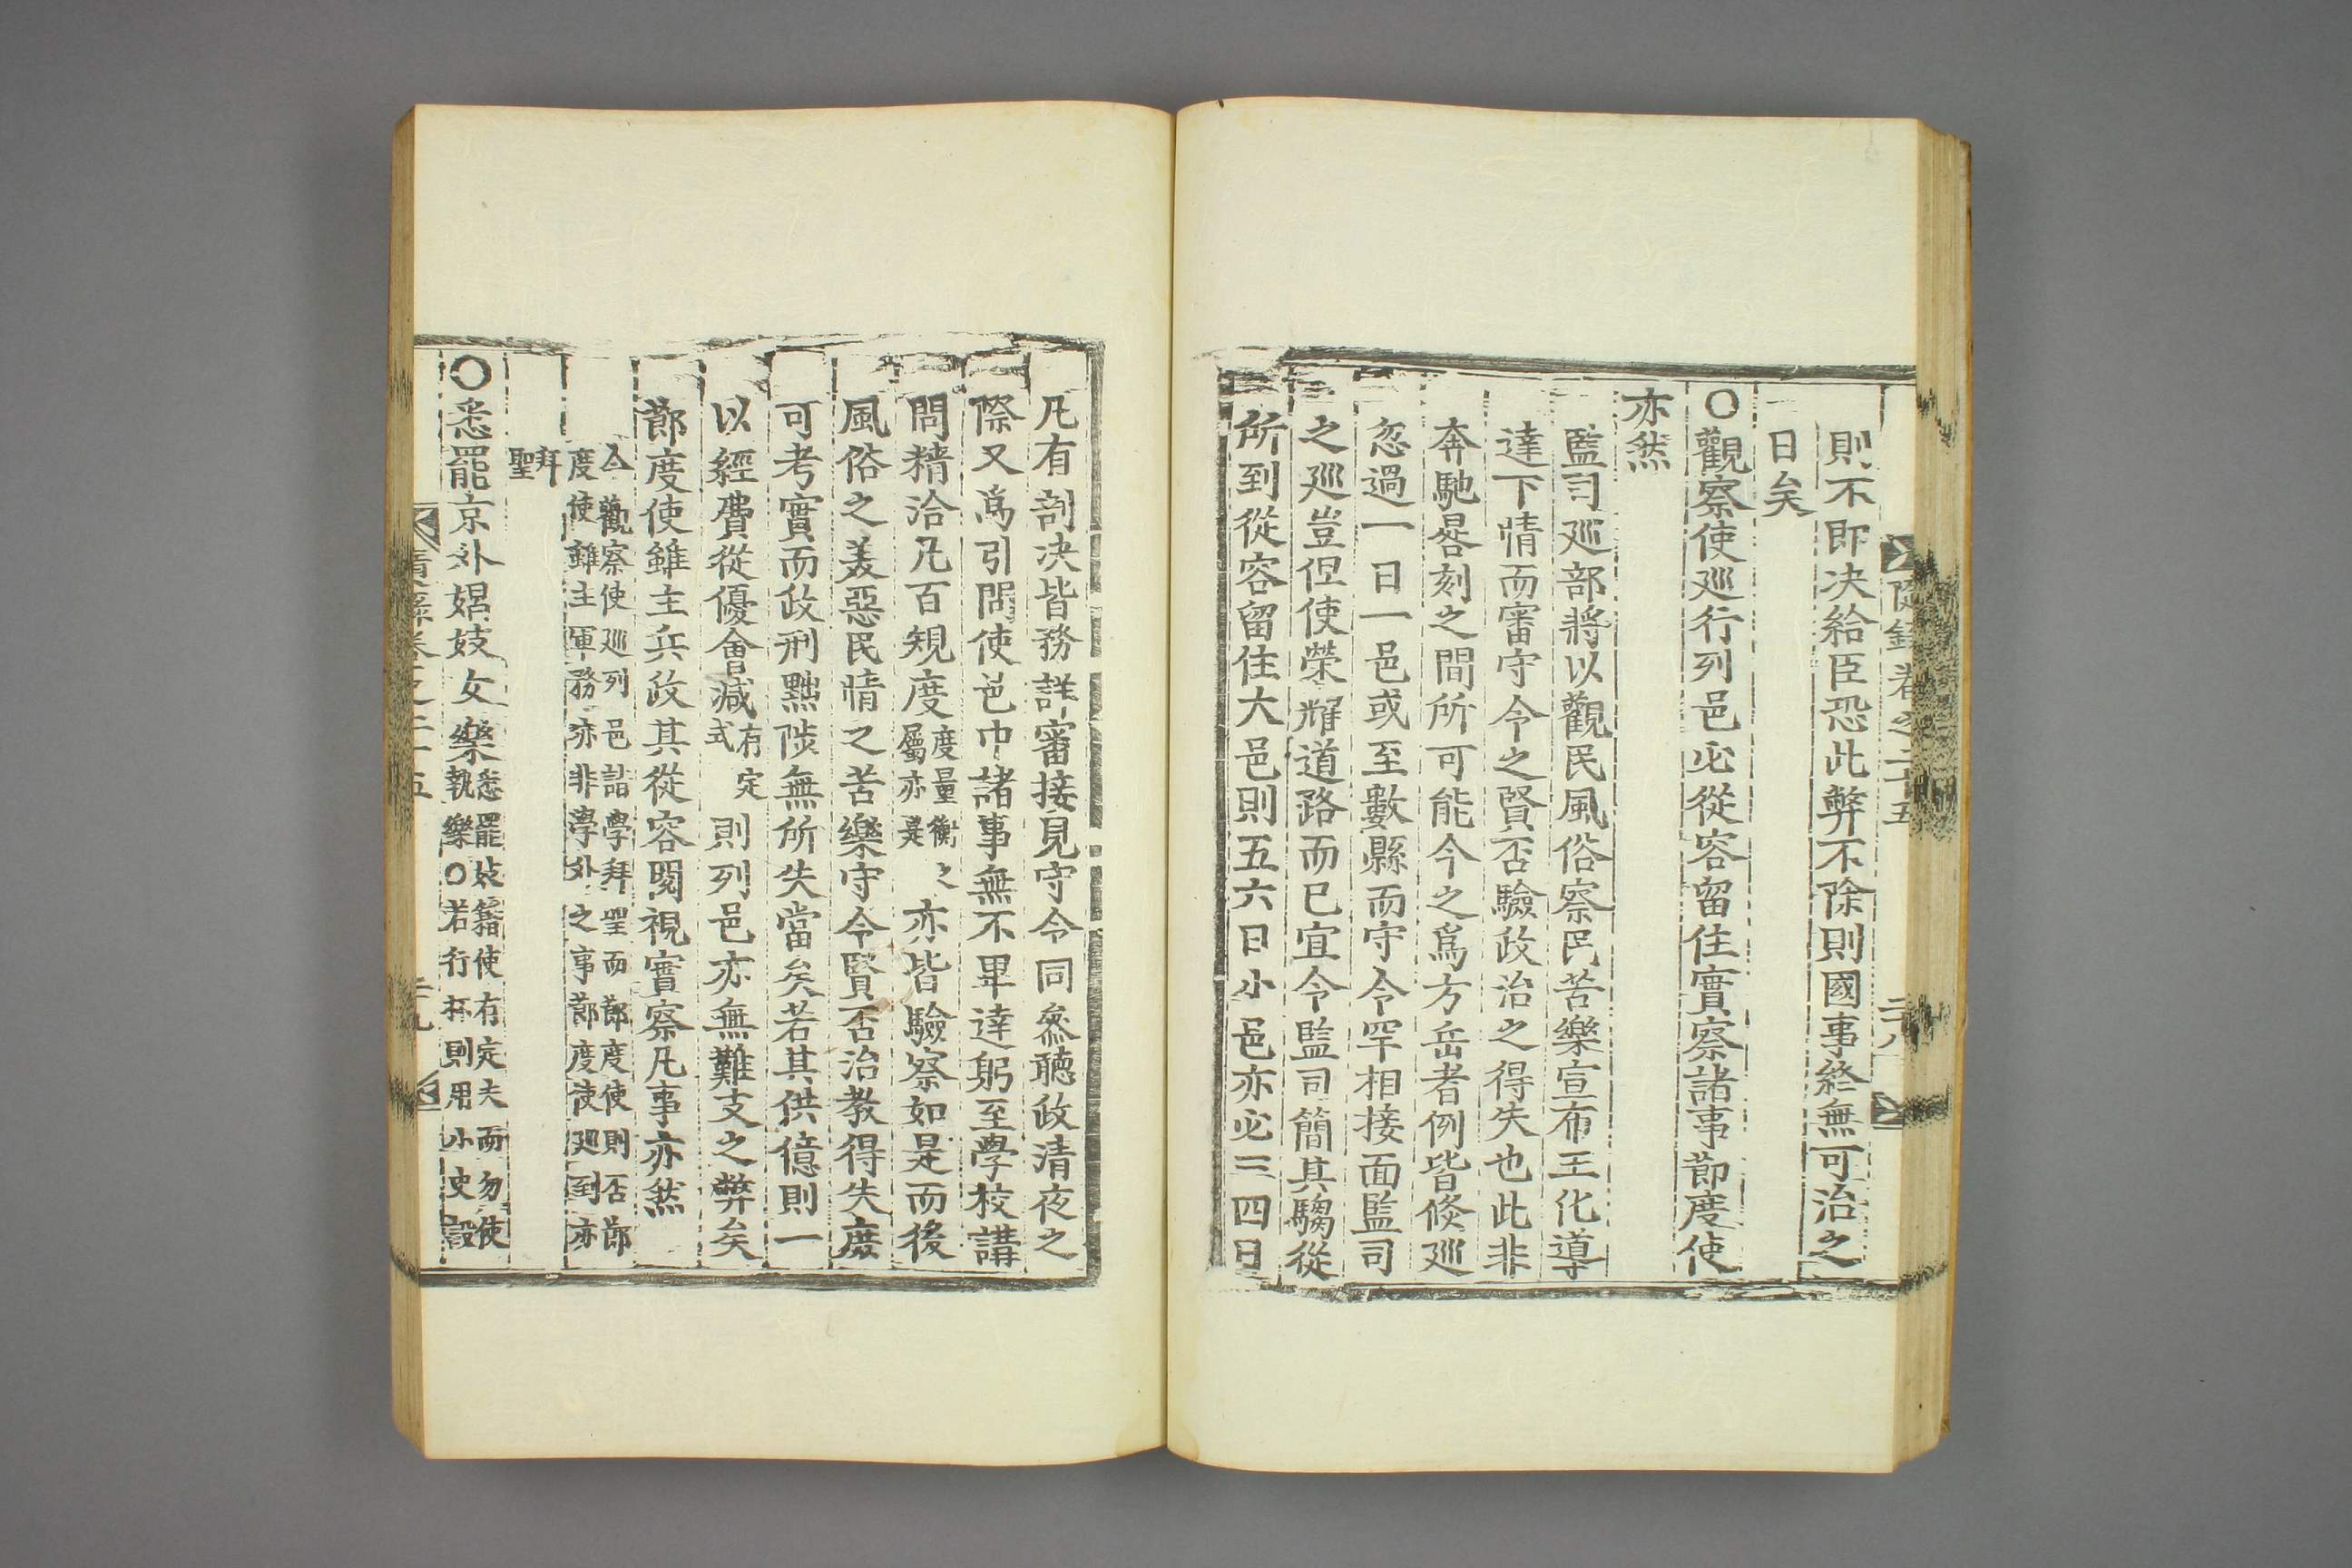 隨錄卷之二十五
二十八
則不即决給臣恐此弊不除則國事終無可治之
日矣
○觀察使廵行列邑必從容留住實察諸事節度使
亦然
監司廵部將以觀民風俗察民苦樂宣布王化導
達下情而審守令之賢否驗政治之得失也此非
奔馳晷刻之間所可能今之爲方岳者例皆倐廵
忽過一日一邑或至數縣而守令罕相接面監司
之廵豈但使榮耀道路而已宜令監司簡其騶從
所到從容留住大邑則五六日小邑亦必三四日
凡有剖决皆務詳審接見守令同叅聽政清夜之
際又爲引問使邑中諸事無不畢達躬至學校講
問精洽凡百規度度量衡之屬亦是亦皆驗察如是而後
風俗之美惡民情之苦樂守令賢否治教得失庶
可考實而政刑黜陟無所失當矣若其供億則一
以經費從優會减有定式則列邑亦無難支之弊矣
節度使雖主兵政其從容閱視實察凡事亦然
今觀察使廵列邑詣學拜聖而節度使則否節
度使雖主軍務亦非學外之事節度使廵到亦
拜
聖
○悉罷京外娼妓女樂悉罷妓籍使有定夫而勿使
執樂○若行杯則用小史設
隨錄卷之二十五
二十九